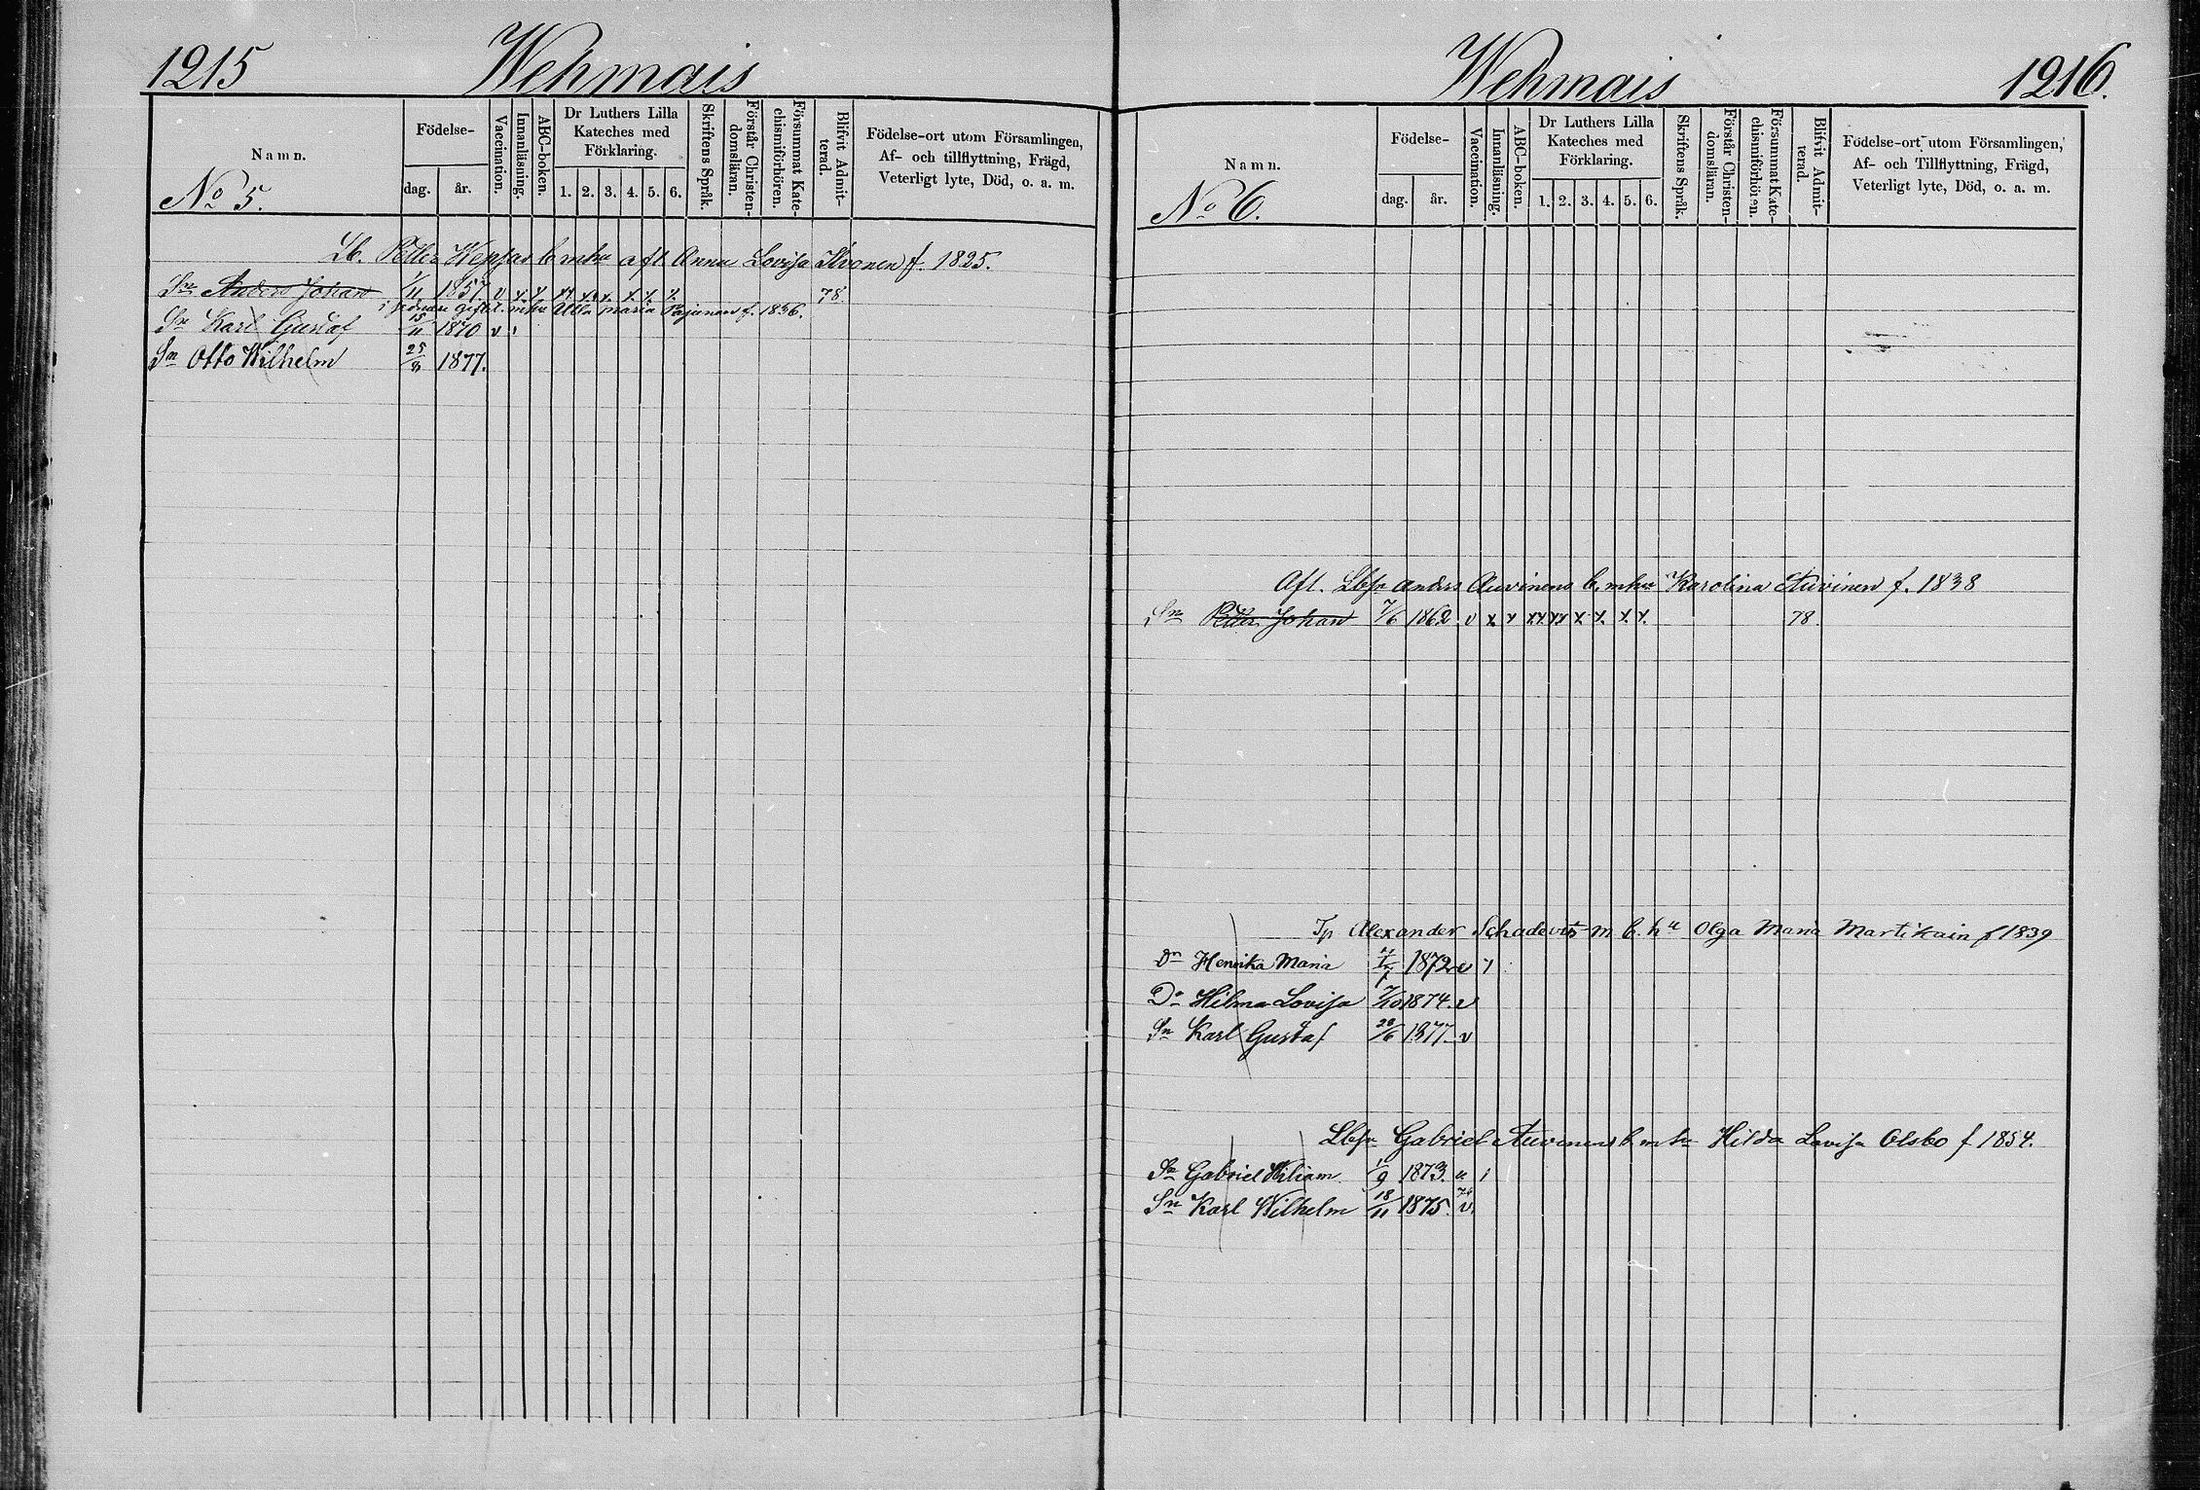 1215 Wehmais
Namn. Födelse- dag. år. Vaccination. Innanläsning. ABC-boken. Dr Luthers Lilla Kateches med Förklaring. 1. 2. 3. 4. 5. 6. Skriftens Språk. Förstår Christendomsläran. Försummat Katechismiförhören. Blifvit Admitterad. Födelse-ort utom Församlingen, Af- och tillflyttning, Frägd, Veterligt lyte, Död, o. a. m.
No 5.
Lb. Petter b mhu aft. Anna Lovisa f. 1825.
Sn Anders Johan 1/11 1857 v x x xx xx x. x. x. x. 78
i andra giftet mhu Ulla Maria Pajunen f. 1836.
Sn Karl Gustaf 15/11 1870 v i
Sn Otto Wilhelm 25/8 1877.
Wehmais 1216.
Namn. Födelse- dag. år. Vaccination. Innanläsning. ABC-boken. Dr Luthers Lilla Kateches med Förklaring. 1. 2. 3. 4. 5. 6. Skriftens Språk. Förstår Christendomsläran. Försummat Katechismiförhören. Blifvit Admitterad. Födelse-ort utom Församlingen, Af- och Tillflyttning, Frägd, Veterligt lyte, Död, o. a. m.
No 6.
Aft. Lbsn Anders Auvinens b. mhu Karolina Auvinen f. 1838
Sn Petter Johan 7/6 1862 v x x xx xx x. x. x. x. 78.
Tp Alexander Schadevits m b. hu Olga Maria Martikain f 1839
Dr Henrika Maria 1872 v 1
Dr Hilma Lovisa 7/10 1874. v
Sn Karl Gustaf 20/6 1877. v
Lbsn Gabriel Auvinens b mhu Hilda Lovisa Olsbo f 1854.
Sn Gabriel Wiliam 1/9 1873. u 1
Sn Karl Wilhelm 18/11 1875. v.